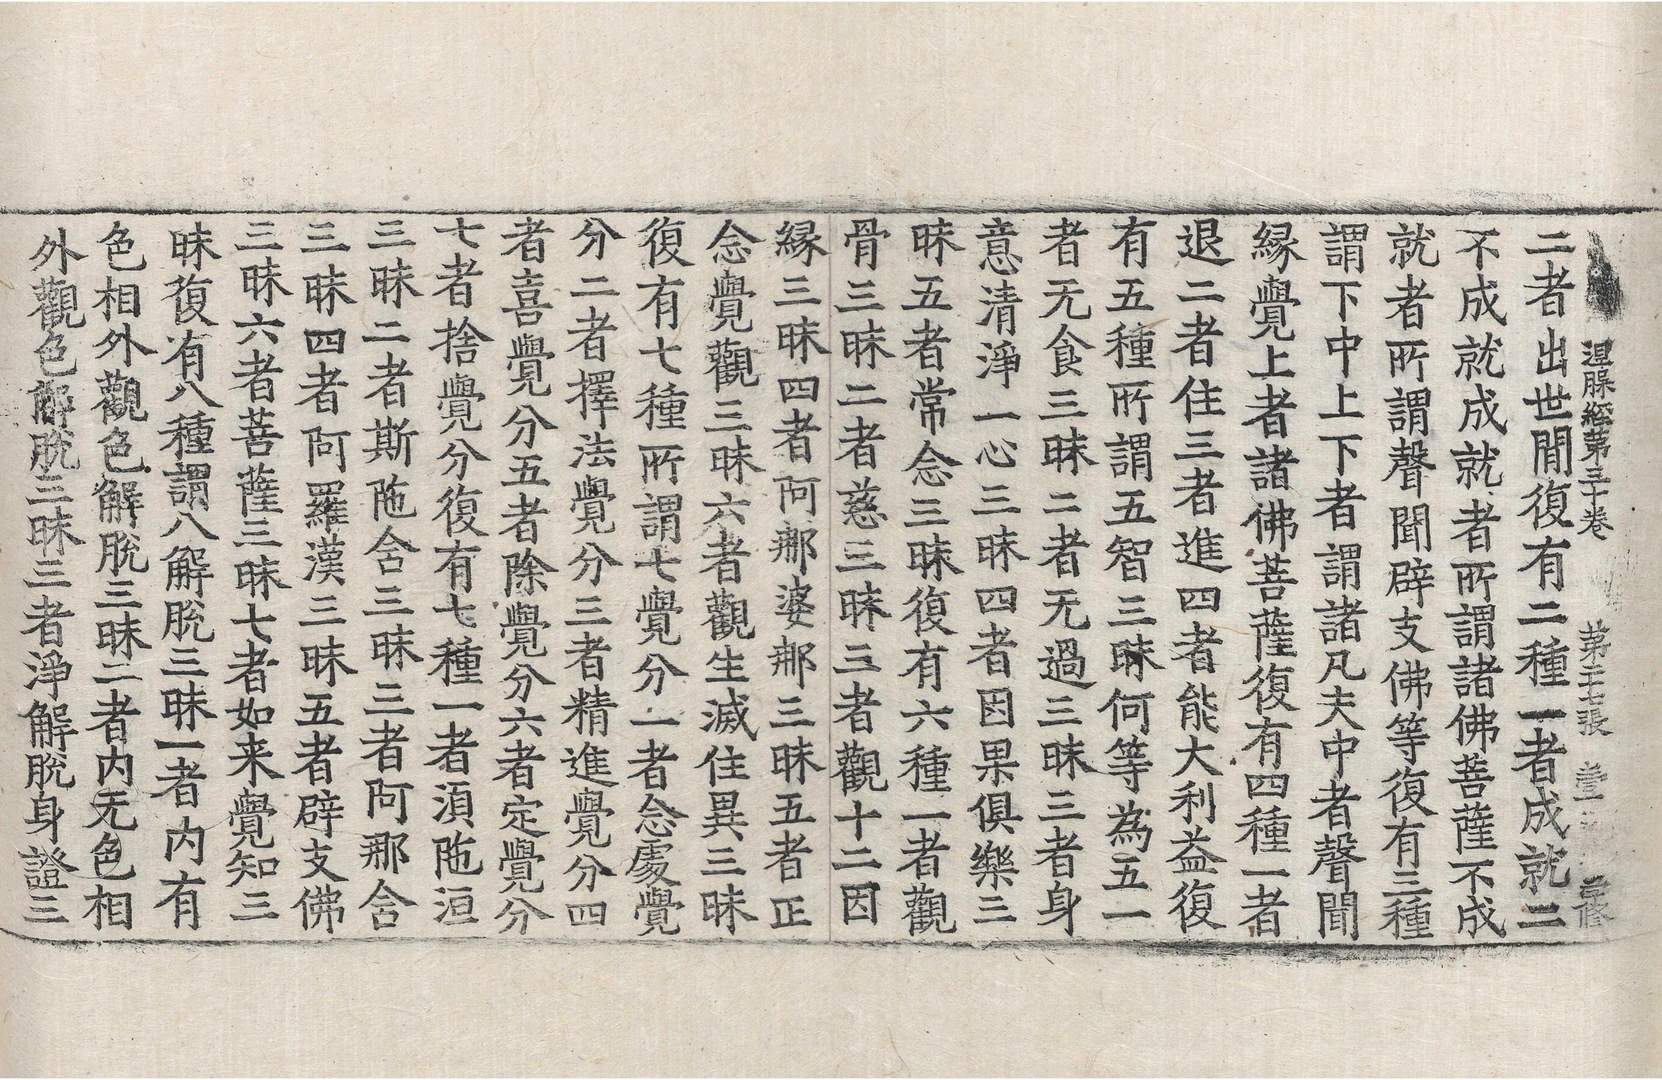 涅槃經第三十卷　第二七張
二者出世間復有二種一者成就二
不成就成就者所謂諸佛菩薩不成
就者所謂聲聞辟支佛等復有三種
謂下中上下者謂諸凡夫中者聲聞
縁覺上者諸佛菩薩復有四種一者
退二者住三者進四者能大利益復
有五種所謂五智三昧何等為五一
者无食三昧二者无過三昧三者身
意清淨一心三昧四者因果俱樂三
昧五者常念三昧復有六種一者觀
骨三昧二者慈三昧三者觀十二因
縁三昧四者阿那婆那三昧五者正
念覺觀三昧六者觀生滅住異三昧
復有七種所謂七覺分一者念處覺
分二者擇法覺分三者精進覺分四
者喜覺分五者除覺分六者定覺分
七者捨覺分復有七種一者湏陁洹
三昧二者斯陁含三昧三者阿那含
三昧四者阿羅漢三昧五者辟支佛
三昧六者菩薩三昧七者如来覺知三
昧復有八種謂八解脫三昧一者内有
色相外觀色解脫三昧二者内无色相
外觀色解脫三昧三者淨解脫身證三